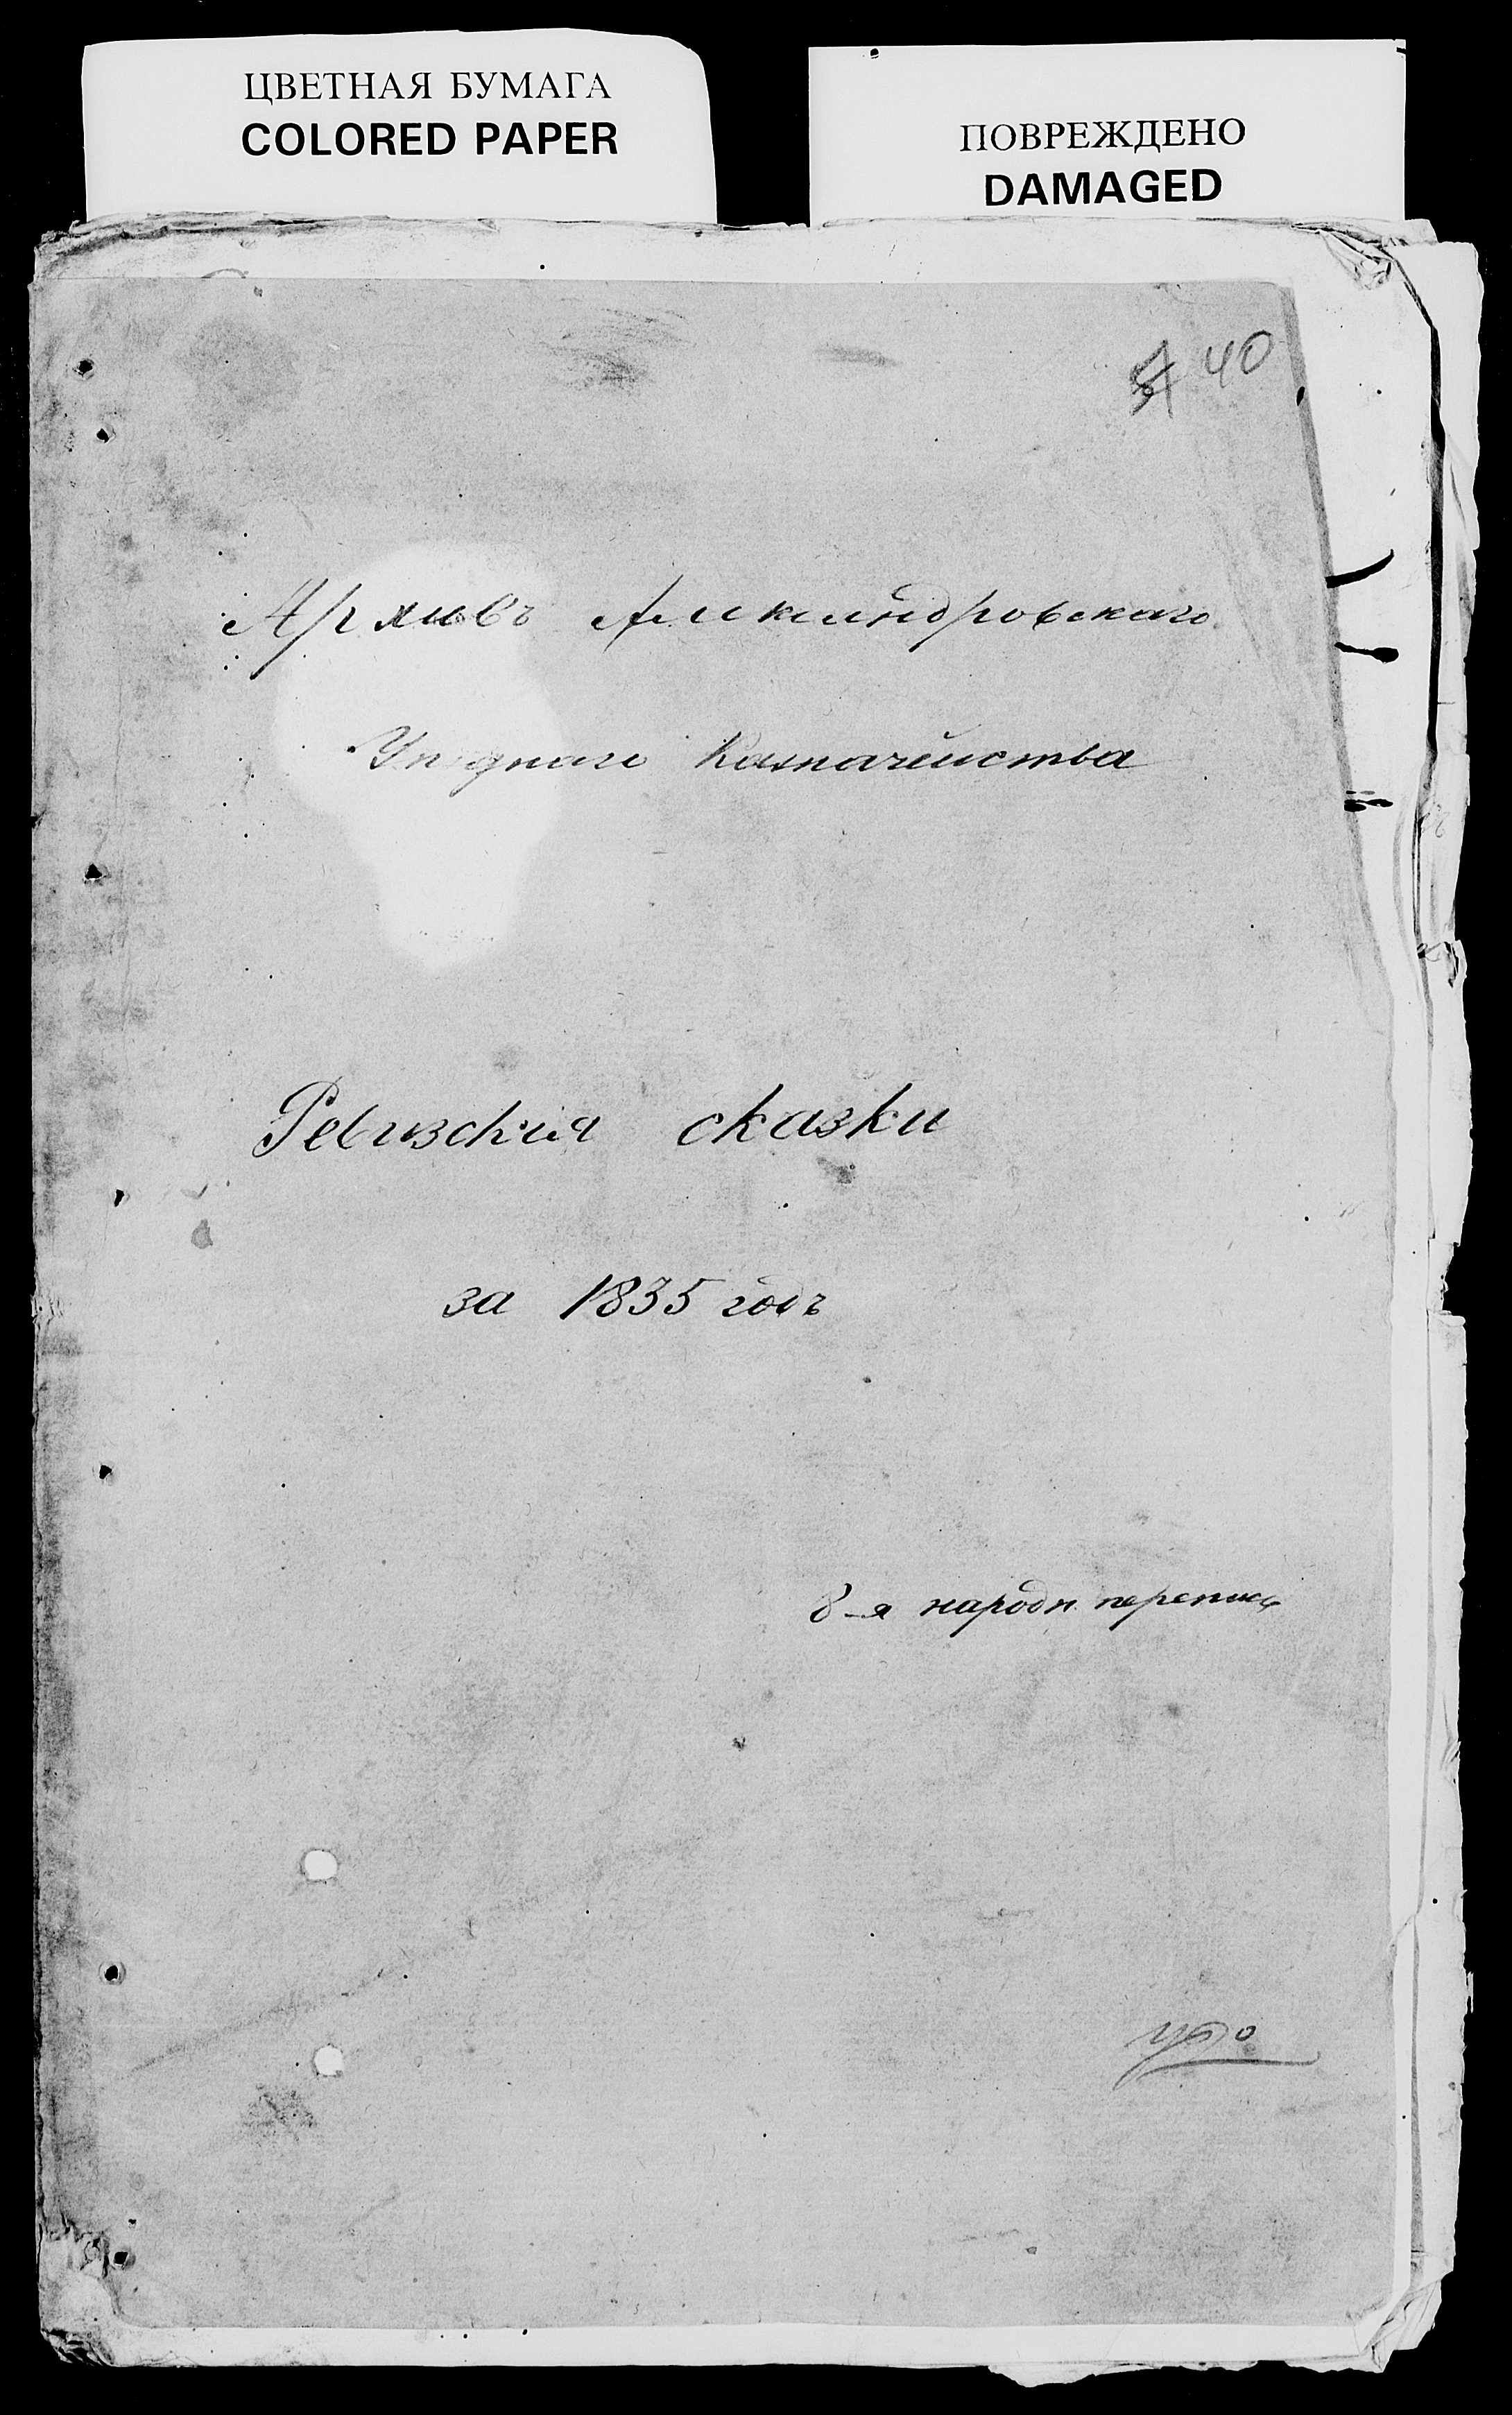 ЦВЕТНАЯ БУМАГА
COLORED PAPER
ПОВРЕЖДЕНО
DAMAGED
40
Архивъ Александровскаго
Уѣзднаго Казначейства
Ревизскія сказки
за 1835 годъ
8-я народн. перепись